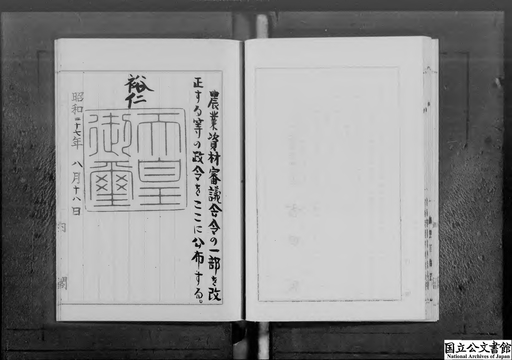 農業資材審議会令の一部を改
正する等の政令をここに公布する。
裕仁
天皇
御璽
昭和二十七年 八月十八日
内閣
国立公文書館
National Archives of Japan